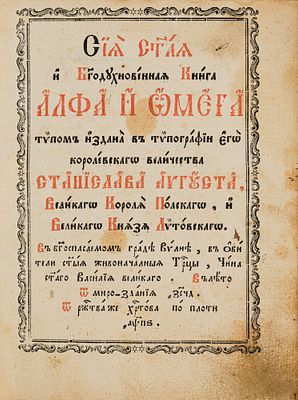 Сїѧ̀ ст҃аѧ
и҆ Бг҃одꙋхнове́ннаѧ Кни́га
А҆́ЛФА И҆ Ѡ҆МЕ́ГА
тѵ́помъ и҆́здана въ тѵпогра́фїи є҆гѡ̀
короле́вскагѡ вели́чества
СТАНІСЛА́ВА А҆́ѴГꙋСТА,
Вели́кагѡ Королѧ̀ По́лскагѡ, и҆
Вели́кагѡ Кнѧ́зѧ Лꙋто́вскагѡ.
Въ бг҃оспаса́емомъ гра́дѣ Ви́лнѣ, въ ѻ҆би́
тели ст҃ы́ѧ живонача́лныѧ Трⷪ҇цы, Чи́на
ст҃а́гѡ Васи́лїѧ вели́кагѡ. Въ лѣ́то
ѿ миро-зда́нїѧ
ѿ рж҃тва́же хр҃то́ва по пло́ти
҂аѱпв.